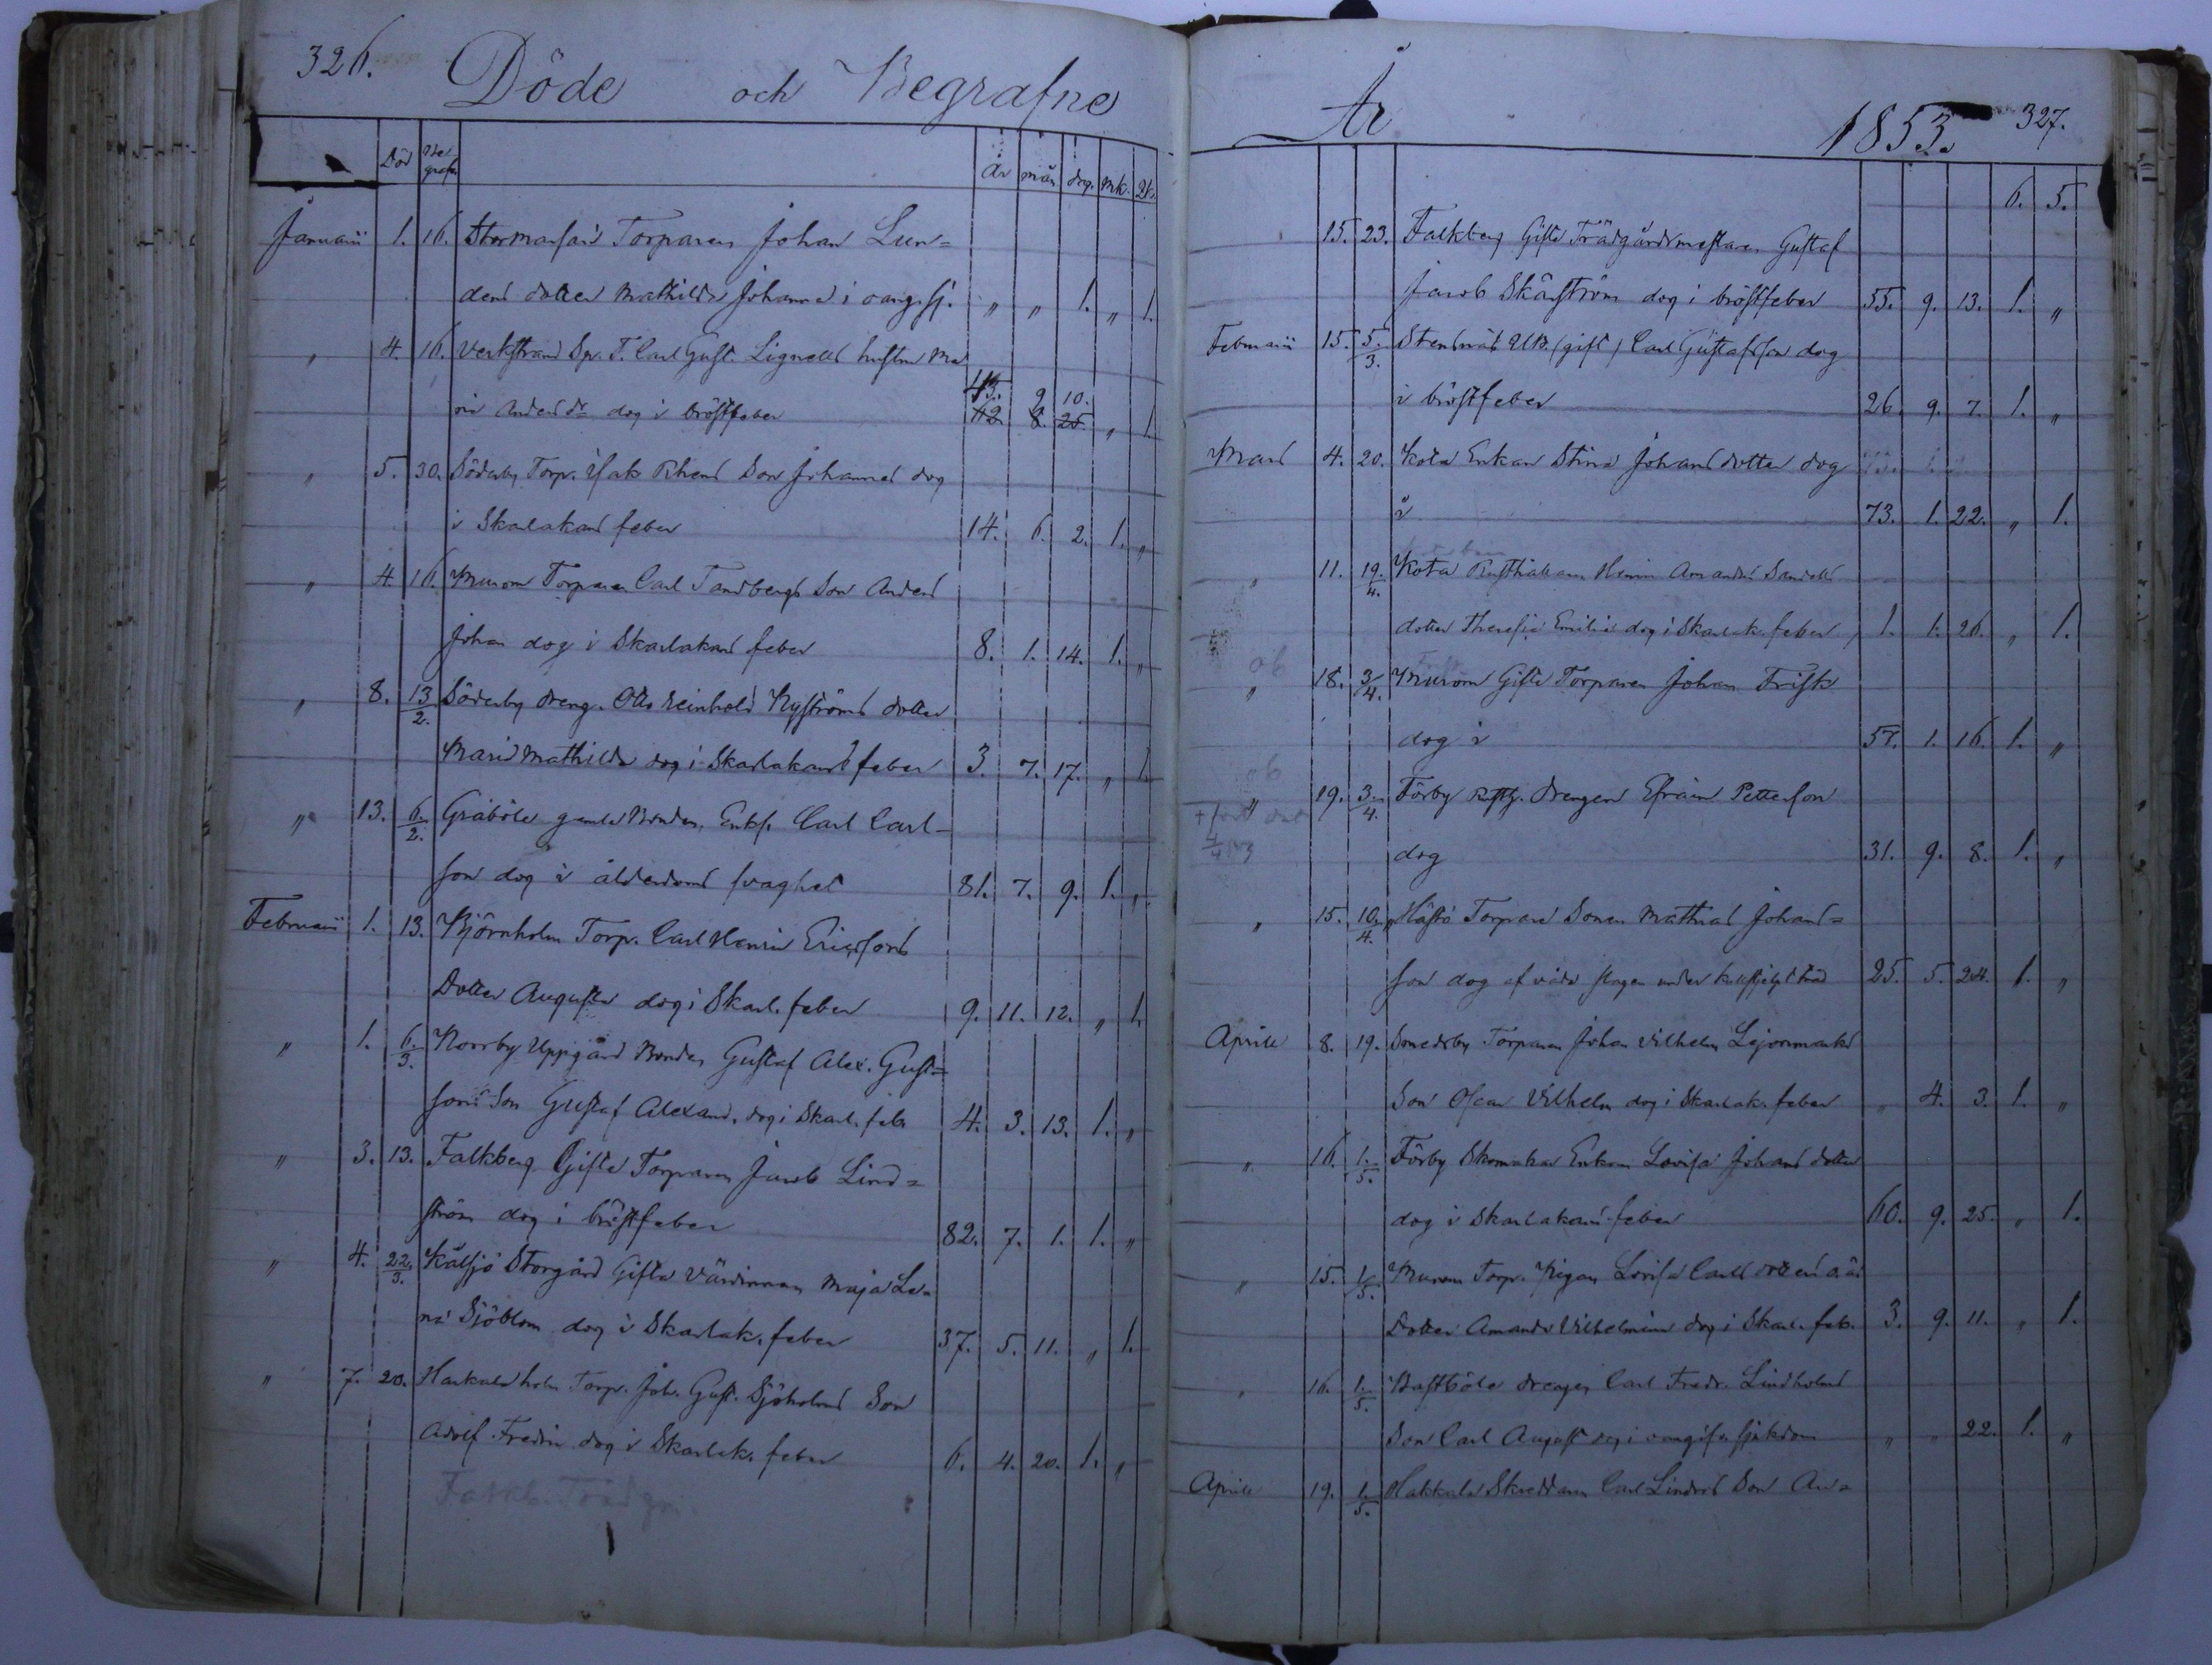 326. Döde och Begrafne
Död Be grafn År mån dag. Mk. Qk.
Januarii 1. 16. Torparen Johan Lun=
dens dotter Mathilda Johanna i oang. sj. " " 1. " 1.
" 4. 16. Verkstrand Carl Gust. Lignells hustru Ma
43. 9 10.
ria Anders dr dog i bröstfeber 42. 8. 25. " 1.
" 5. 30. Söderby Torp. Isak Rhens Son Johannes dog
i Skarlakans feber 14. 6. 2. 1. "
" 4. 16. Murom Torparen Carl Tandbergs Son Anders
Johan dog i Skarlakans feber 8. 1. 14. 1. "
" 8. 13/2. Söderby dreng. Otto Reinhold Nyströms dotter
Maria Mathilda dog i Skarlakans feber 3. 7. 17. " 1.
" 13. 6/2. Gräböle gamle Bonden, Enkl. Carl Carl-
son dog i ålderdoms svaghet 81. 7. 9. 1. "
Februarii 1. 13. Björnholm Torp. Carl Henric Ericssons
Dotter Augusta dog i Skarl. feber 9. 11. 12. " 1.
" 1. 6/3. Norrby Uppgård Bonden Gustaf Alex. Gust=
sons Son Gustaf Alexand. dog i Skarl. feb. 4. 3. 13. 1. "
" 3. 13. Falkberg Gifte Torparen Jacob Lind=
ström dog i bröstfeber 82. 7. 1. 1. "
" 4. 22/3. Kålsjö Storgård Gifta Värdinnan Maja Le=
na Sjöblom dog i Skarlak. feber 37. 5. 11. " 1.
" 7. 20. Torp. Joh. Gust. Sjöholms Son
Adolf Fredric dog i Skarlak. feber 6. 4. 20. 1. "
Falkb. Trädgm
År 1853. 327.
6. 5.
15. 23. Falkberg Gifte Trädgårdsmästaren Gustaf
Jacob Skärström dog i bröstfeber 55. 9. 13. 1. "
Februarii 15. 5/3. Stensnäs (gift) Carl Gustafsson dog
i bröstfeber 26. 9. 7. 1. "
Mars 4. 20. Enkan Stina Johans dotter dog
i 73. 1. 22. " 1.
" 11. 19/4. Rusthållaren Henric Amandus Sandells
dotter Theresia Emilia dog i Skarlak. feber 1. 1. 26. " 1.
ob
" 18. 3/4. Murom Gifte Torparen Johan Frisk
dog i 57. 1. 16. 1. "
ob
" 19. 3/4. Förby Rusth. drengen Efraim Petterson
dog 31. 9. 8. 1. "
" 15. 10/4. Hästö Torpare Sonen Mathias Johans=
son dog af våda slagen under träd 25. 5. 24. 1. "
Aprile 8. 19. Smedsby Torparen Johan Vilhelm Lejonmarks
Son Oscar Vilhelm dog i Skarlak. feber " 4. 3. 1. "
" 16. 1/5. Förby Skomakar Enkan Lovisa Johans dotter
dog i Skarlakans feber 60. 9. 25. " 1.
" 15. 1/5. Murom Torp. Pigan Lovisa Carls dotters oä:
Dotter Amanda Vilhelmina dog i Skarl. feb. 3. 9. 11. " 1.
" 16. 1/5. Bastböle drengen Carl Fredr. Lindholms
Son Carl August dog i oangifven sjukdom " " 22. 1. "
Aprile 19. 1/5. Skreddaren Carl Lindros Son An=